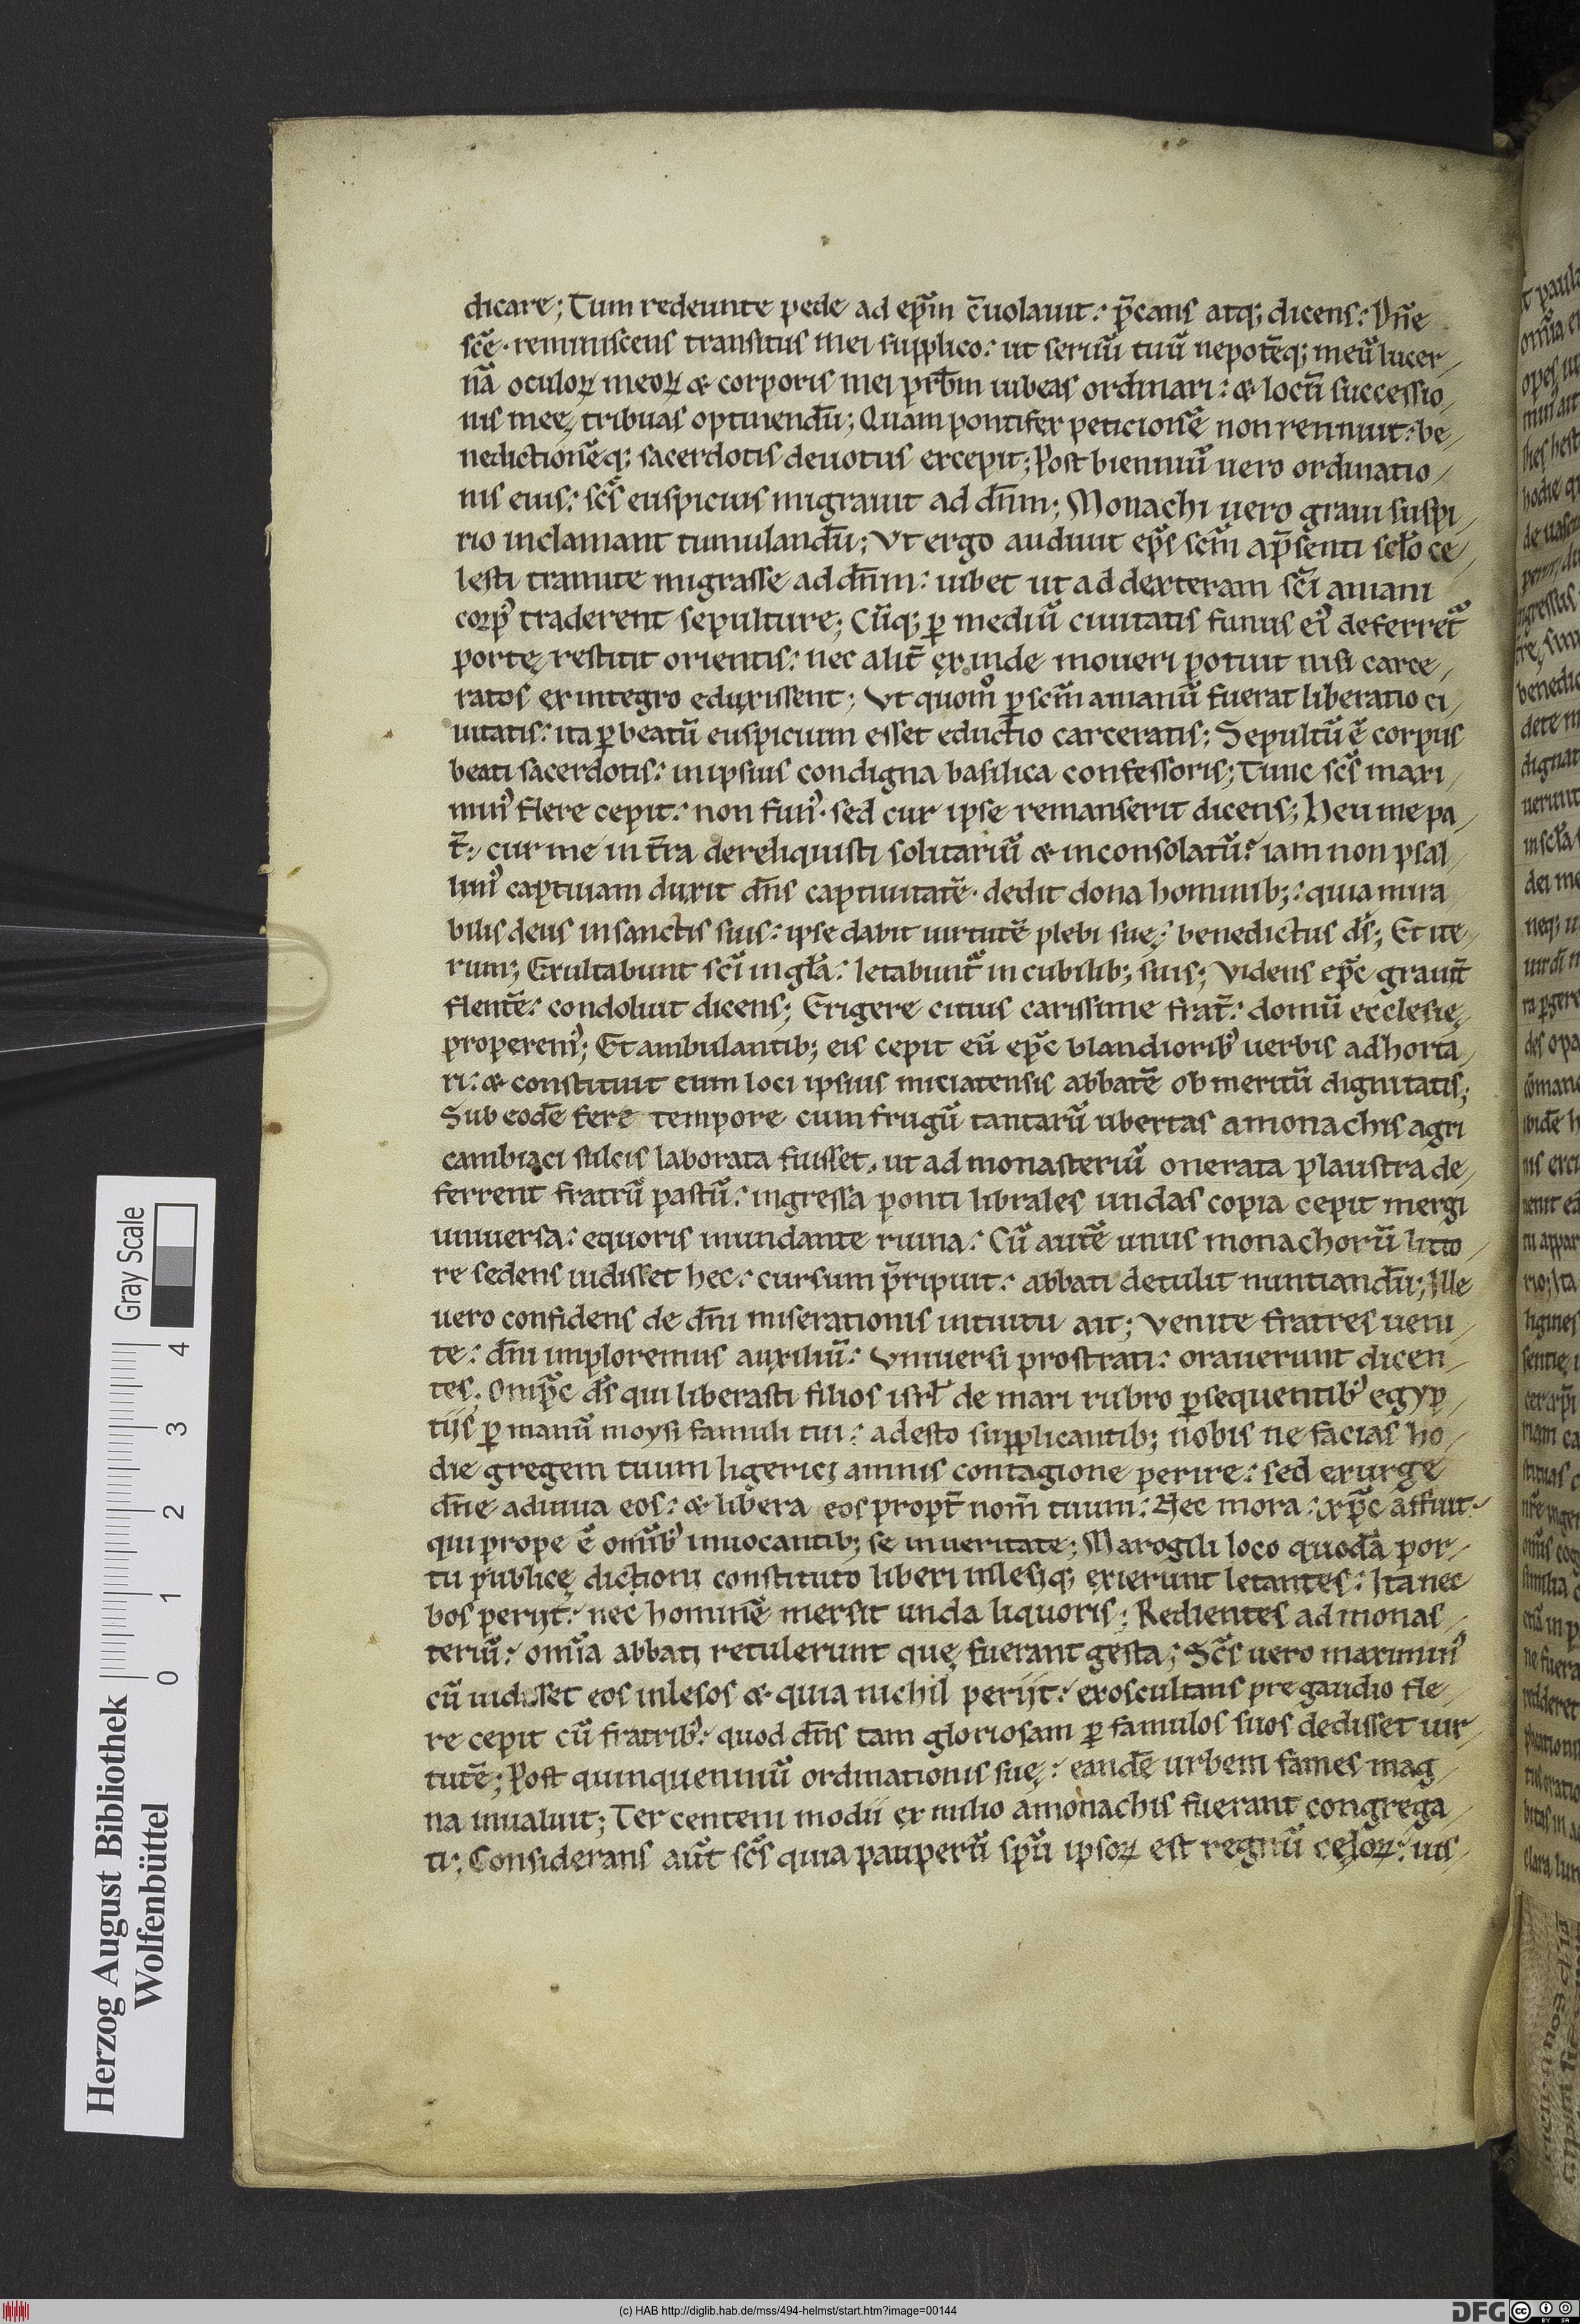 dicare; Tum redeunte pede ad ep̃m c̃uolauit: p̃cans atq; dicens: Dñe
sc̃e · reminiscens transitus mei supplico: ut seruũ tuũ nepotẽq; meũ lucer-
nã oculoꝝ meoꝝ & corporis mei prb̃m iubeas ordinari: & locũ successio-
nis meę, tribuas optinendũ; Quam pontifex peticionẽ non rennuit: be-
nedictionẽq; sacerdotis deuotus excepit; Post bienniũ uero ordinatio-
nis eius: sc̃s euspicius migrauit ad dñm; Monachi uero graui suspi-
rio inclamant tumulandũ; Vt ergo audiuit ep̃s scm̃ ap̃senti scło ce-
lesti tramite migrasse ad dñm: iubet ut ad dexteram sc̃i aniani
corp᷒ traderent sepulture; Cũq; ꝑ mediũ ciuitatis funus ei᷒ deferret᷑
portę restitit orientis: nec alit̃ exinde moueri potuit nisi carce-
ratos ex integro eduxissent; Vt quom̊ ꝑ scm̃ anianũ fuerat liberatio ci-
uitatis: ita ꝑ beatũ euspicium esset eductio carceratis; Sepultũ ẽ corpus
beati sacerdotis: in ipsius condigna basilica confessoris; Tunc sc̃s maxi-
min᷒ flere cepit: non fun᷒ · sed cur ipse remanserit dicens; Heu me pa-
t̃: cur me in t̃ra dereliquisti solitariũ & inconsolatũ? iam non psal-
lim᷒ captiuam duxit dñs captiuitatẽ · dedit dona hominib;: quia mira-
bilis deus in sanctis suis: ipse dabit uirtutẽ plebi suę: benedictus ds̃; Et ite-
rum; Exultabunt sc̃i in gła: letabunt᷑ in cubilib; suis; Videns ep̃c grauit̃
flentẽ: condoluit dicens; Erigere citius carissime frat̃: domũ ecclesię
properem᷒; Et ambulantib; eis cepit eũ ep̃c blandiorib᷒ uerbis adhorta-
ri: & constituit eum loci ipsius miciatensis abbatẽ ob meritũ dignitatis;
Sub eodẽ fere tempore cum frugũ tantarũ ubertas a monachis agri
cambiaci sulcis laborata fuisset, ut ad monasteriũ onerata plaustra de-
ferrent fratrũ pastũ: ingressa ponti librales undas copia cepit mergi
uniuersa: equoris inundante ruina: Cũ autẽ unus monachorũ litto-
re sedens uidisset hec: cursum p̃ripuit: abbati detulit nuntiandũ; Ille
uero confidens de dñi miserationis intuitu ait; Venite fratres ueni-
te: dñi imploremus auxiliũ: Vniuersi prostrati: orauerunt dicen-
tes. Omp̃c ds̃ qui liberasti filios isrł de mari rubro ꝑsequentib᷒ egyp-
tijs ꝑ manũ moysi famuli tui: adesto supplicantib; nobis ne facias ho-
die gregem tuum ligerici amnis contagione perire: sed exurge
dñe adiuua eos: & libera eos propt̃ nom̃ tuum: Nec mora: xp̃c affuit
qui prope ẽ omĩb᷒ inuocantib; se in ueritate; Marogili loco quodã por-
tu publicę dictioni constituto liberi inlesiq; exierunt letantes: Ita nec
bos perijt: nec hominẽ mersit unda liquoris; Redientes ad monas-
teriũ: om̃ia abbati retulerunt quę fuerant gesta; Sc̃s uero maximin᷒
cũ uidisset eos inlesos & quia nichil perijt: exoscultans pre gaudio fle-
re cepit cũ fratrib᷒: quod dñs tam gloriosam ꝑ famulos suos dedisset uir-
tutẽ; Post quinquenniũ ordinationis suę: eandẽ urbem fames mag-
na inualuit; Ter centeni modii ex milio a monachis fuerant congrega-
ti; Considerans aut̃ sc̃s quia pauperũ spũ ipsoꝝ est regnũ cęloꝝ: uis-
Herzog August Bibliothek
Wolfenbüttel
0 1 2 3 4
Gray Scale
(c) HAB http://diglib.hab.de/mss/494-helmst/start.htm?image=00144
DFG
cc BY SA